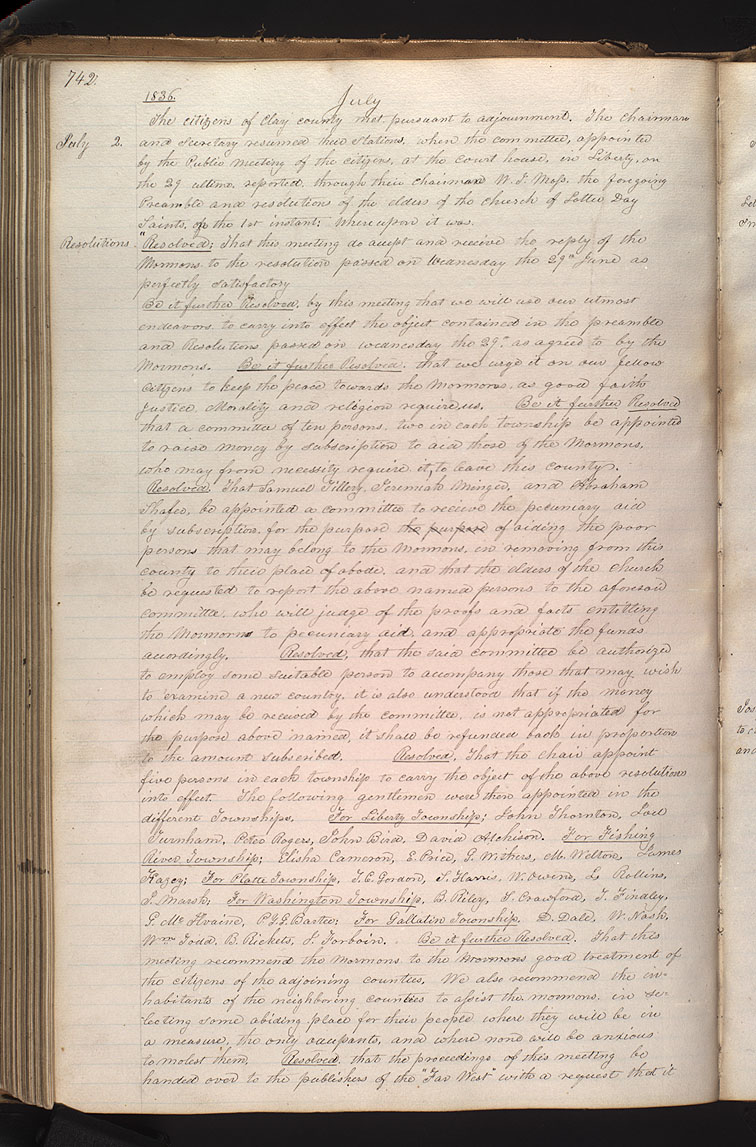 742.
1836.
July
The citizens of Clay county met pursuant to adjournment. The chairman
July 2.
and secretary resumed their stations, when the committee, appointed
by the Public meeting of the citizens, at the court house, in Liberty, on
the 29 ultimo, reported, through their chairman W. T. Moss, the foregoing
Preamble and resolutions of the elders of the church of Latter Day
Saints, of the 1st instant; Whereupon it was.
Resolutions.
"Resolved; That this meeting do acept and receive the reply of the
Mormons to the resolution passed on Wednesday the 29th June as
perfectly satisfactory
Be it further Resolved, by this meeting that we will use our utmost
endeavors to carry into effect the object contained in the preamble
and Resolutions passed on wednesday the 29th, as agreed to by the
Mormons. Be it further Resolved, that we urge it on our fellow
Citizens to keep the peace towards the Mormons, as good faith
Justice, Morality and religion require us. Be it further Resolved
that a committee of ten persons, two in each township be appointed
to raise money by subscription to aid those of the Mormons,
who may from necessity require it, to leave this county.
Resolved, That Samuel Tillery, Jeremiah Minger, and Abraham
Shafee, be appointed a committee to receive the pecuniary aid
by subscription, for the purpose the purpose of aiding the poor
persons that may belong to the Mormons, in removing from this
county to their place of abode, and that the elders of the church
be requested to report the above named persons to the aforesaid
committee, who will judge of the proofs and facts entitling
the Mormons to pecuniary aid, and appropriate the funds
acordingly. Resolved, that the said committee be authorized
to employ some suitable person to accompany those that may wish
to examine a new country, it is also understood that if the money
which may be received by the committee, is not appropriated for
the purpose above named, it shall be refunded back in proportion
to the amount subscribed. Resolved, That the chair appoint
five persons in each township to carry the object of the above resolutions
into effect. The following gentlemen were then appointed in the
different Townships. For Liberty Township; John Thornton, Joel
Turnham, Peter Rogers, John Bird, David Atchison. For Fishing
River Township; Elisha Cameron, E. Price, G. Withers, M. Welton, James
Kazey; For Platte Township, T. C. Gordon, S. Harris, W. Owen, L. Rollins,
J. Marsh; For Washington Township, B. Riley, S. Crawford, T. Findley,
G. McIlvaine, P. Y. G. Bartee; For Gallatin Township, D. Dale, W. Nash,
Wm Todd, B. Rickels, J. Forboin. Be it further Resolved. That this
meeting recommend the Mormons to the Mormons good treatment of
the citizens of the adjoining counties. We also recommend the in-
habitants of the neighboring counties to assist the mormons, in se-
lecting some abiding place for their people where they will be in
a measure, the only occupants, and where none will be anxious
to molest them. Resolved, that the proceedings of this meeting be
handed over to the publishers of the "Far West" with a request that it